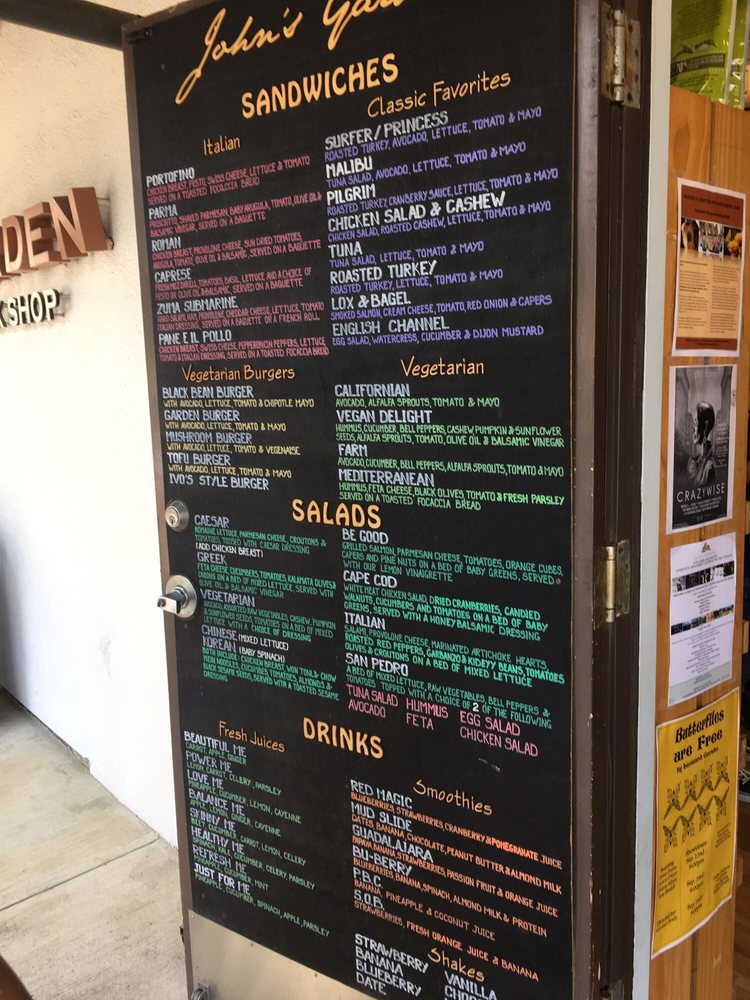 John's
SANDWICHES
Italian
PORTOFINO
CHICKEN BREAST, PESTO, SWISS CHEESE, LETTUCE & TOMATO
SERVED ON A TOASTED FOCALCCIA BREAD
PARMA
PROSCIUTTO, SHAVED PARMESAN, BABY ARUGULA, TOMATO, OLIVE OIL &
BALSAMIC VINEGAR, SERVED ON A BAGUETTE
ROMAN
CHICKEN BREAST, PROVOLONE CHEESE, SUN DRIED TOMATOES,
ARUGULA TOMATO, OLIVE OIL & BALSAMIC, SERVED ON A BAGUETTE
CAPRESE
FRESH MOZZARELL, TOMATOES, BASIL, LETTUCE AND A CHOICE OF
PESTO OR OLIVE OIL & BALSAMIC, SERVED ON A BAGUETTE
ZUMA SUBMARINE
HARD SALAMI, HAM, PROVOLONE, CHEDDAR CHEESE, LETTUCE, TOMATO
ITALIAN DRESSING, SERVED ON A BAGUETTE OR A FRENCH ROLL
PANE E IL POLLO
CHICKEN BREAST, SWISS CHEESE, PEPPERONCIN PEPPERS, LETTUCE
TOMATO & ITALIAN DRESSING, SERVED ON A TOASTED FOCACCIA BREAD
Classic Favorites
SURFER/PRINCESS
ROASTED TURKEY, AVOCADO, LETTUCE, TOMATO & MAYO
MALIBU
TUNA SALAD, AVOCADO, LETTUCE, TOMATO & MAYO
PILGRIM
ROASTED TURKEY, CRANBERRY SAUCE, LETTUCE, TOMATO & MAYO
CHICKEN SALAD & CASHEW
CHICKEN SALAD, ROASTED CASHEW, LETTUCE, TOMATO & MAYO
TUNA
TUNA SALAD, LETTUCE, TOMATO & MAYO
ROASTED TURKEY
ROASTED TURKEY, LETTUCE, TOMATO & MAYO
LOX & BAGEL
SMOKED SALMON, CREAM CHEESE, TOMATO, RED ONION & CAPERS
ENGLISH CHANNEL
EGG SALAD, WATERCRESS, CUCUMBER & DIJON MUSTARD
Vegetarian Burgers
BLACK BEAN BURGER
WITH AVOCADO, LETTUCE, TOMATO & CHIPOTLE MAYO
GARDEN BURGER
WITH AVOCADO, LETTUCE, TOMATO & MAYO
MUSHROOM BURGER
WITH AVOCADO, LETTUCE, TOMATO & VEGENAISE
TOFU BURGER
WITH AVOCADO, LETTUCE, TOMATO & MAYO
IVO'S STYLE BURGER
Vegetarian
CALIFORNIAN
AVOCADO, ALFALFA SPROUTS, TOMATO & MAYO
VEGAN DELIGHT
HUMMUS, CUCUMBER, BELL PEPPERS, CASHEW, PUMPKIN & SUNFLOWER
SEEDS, ALFALFA SPROUTS, TOMATO, OLIVE OIL & BALSAMIC VINEGAR
FARM
AVOCADO, CUCUMBER, BELL PEPPERS, ALFALFA SPROUTS, TOMATO & MAYO
MEDITERRANEAN
HUMMUS, FETA CHEESE, BLACK OLIVES, TOMATO & FRESH PARSLEY
SERVED ON A TOASTED FOCACCIA BREAD
SALADS
CAESAR
ROMAINE LETTUCE, PARMESAN CHEESE, CROUTONS &
TOMATOES TOSSED WITH CAESAR DRESSING
(ADD CHICKEN BREAST)
GREEK
FETA CHEESE, CUCUMBERS, TOMATOES, KALAMATA OLIVES &
ONIONS ON A BED OF MIXED LETTUCE, SERVED WITH
OLIVE OIL & BALSAMIC VINEGAR
VEGETARIAN
AVOCADO, ASSORTED RAW VEGETABLES, CASHEW, PUMPKIN
& SUNFLOWER SEEDS, TOMATOES ON A BED OF MIXED
LETTUCE WITH A CHOICE OF DRESSING
CHINESE (MIXED LETTUCE)
KOREAN (BABY SPINACH)
BOTH INCLUDE: CHICKEN BREAST, WON TONS & CHOW
MEIN NOODLES, CUCUMBERS, TOMATOES, ALMONDS &
BLACK SESAME SEEDS, SERVED WITH A TOASTED SESAME
DRESSING
BE GOOD
GRILLED SALMON, PARMESAN CHEESE, TOMATOES, ORANGE CUBES,
CAPERS AND PINE NUTS ON A BED OF BABY GREENS, SERVED
WITH OUR LEMON VINAIGRETTE
CAPE COD
WHITE MEAT CHICKEN SALAD, DRIED CRANBERRIES, CANDIED
WALNUTS, CUCUMBERS AND TOMATOES ON A BED OF BABY
GREENS, SERVED WITH A HONEY BALSAMIC DRESSING
ITALIAN
SALAME PROVOLONE CHEESE, MARINATED ARTICHOKE HEARTS,
ROASTED RED PEPPERS, GARBANZO & KIDEYY BEANS, TOMATOES
OLIVES & CROUTONS ON A BED OF MIXED LETTUCE
SAN PEDRO
A BED OF MIXED LETTUCE, RAW VEGETABLES, BELL PEPPERS &
TOMATOES TOPPED WITH A CHOICE OF 2 OF THE FOLLOWING
TUNA SALAD HUMMUS EGG SALAD
AVOCADO FETA CHICKEN SALAD
DRINKS
Fresh Juices
BEAUTIFUL ME
CARROT, APPLE, GINGER
POWER ME
LEMON, CARROT, CELERY, PARSLEY
LOVE ME
PINEAPPLE, CUCUMBER, LEMON, CAYENNE
BALANCE ME
APPLE, LEMON, GINGER, CAYENNE
SKINNY ME
BEET, CUCUMBER, CARROT, LEMON, CELERY
HEALTHY ME
SPINACH, KALE, CUCUMBER, CELERY, PARSLEY
REFRESH ME
PINEAPPLE, CUCUMBER, MINT
JUST FOR ME
PINEAPPLE, CUCUMBER, SPINACH, APPLE, PARSLEY
Smoothies
RED MAGIC
BLUEBERRIES, STRAWBERRIES, CRANBERRY & POMEGRANATE JUICE
MUD SLIDE
DATES, BANANA, CHOCOLATE, PEANUT BUTTER & ALMOND MILK
GUADALAJARA
PAPAYA, BANANA, STRAWBERRIES, PASSION FRUIT & ORANGE JUICE
BU-BERRY
BLUEBERRIES, BANANA, SPINACH, ALMOND MILK & PROTEIN
P.B.C.
BANANA, PINEAPPLE & COCONUT JUICE
S.O.B.
STRAWBERRIES, FRESH ORANGE JUICE & BANANA
Shakes
STRAWBERRY VANILLA
BANANA
BLUEBERRY
DATE
DEN
K SHOP
CRAZYWISE
Butterflies
are Free